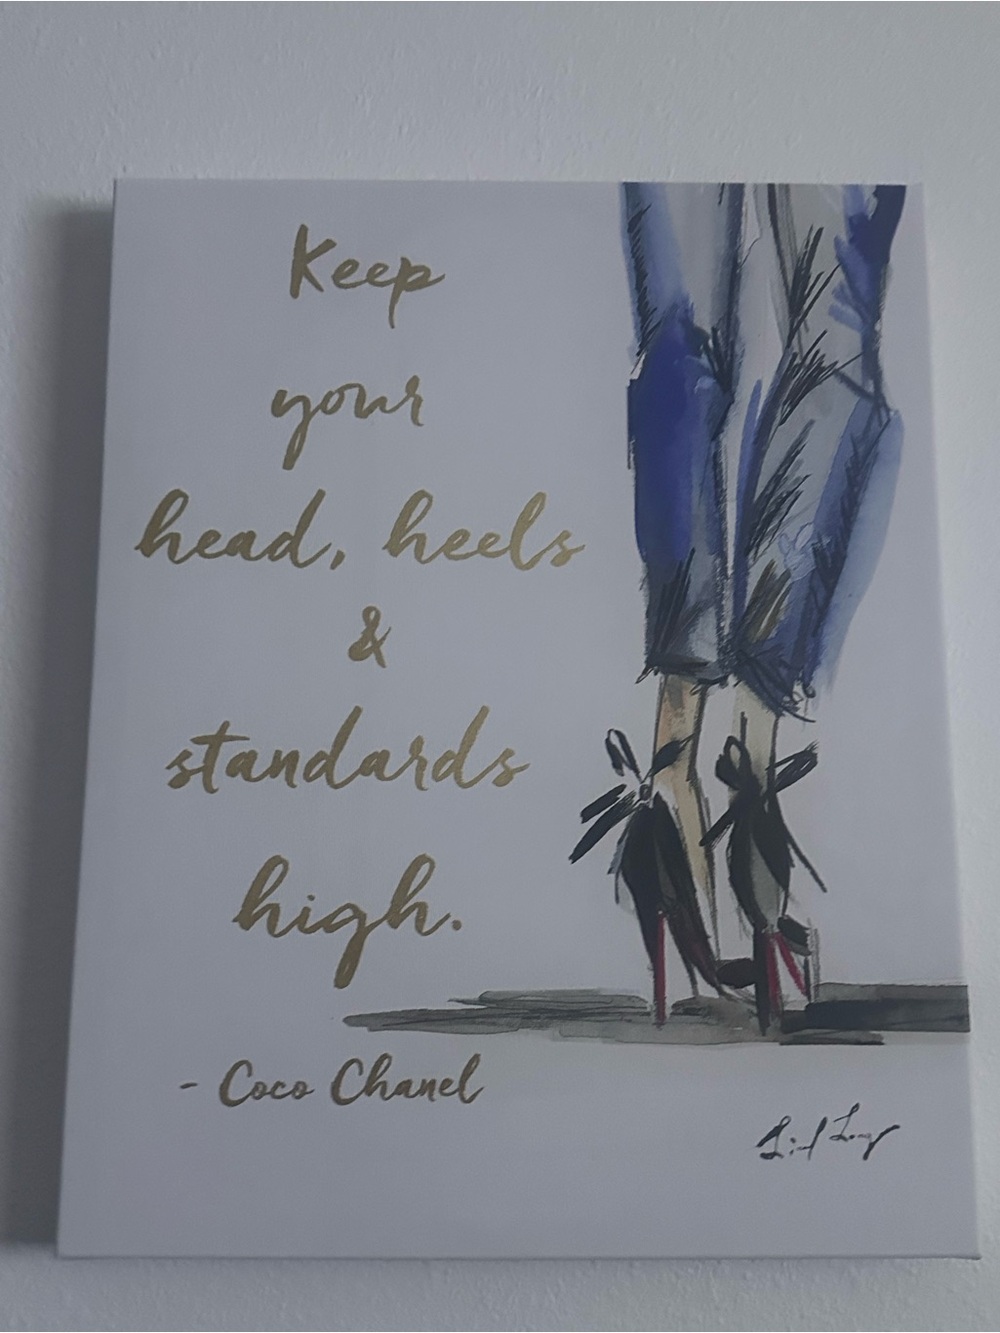 Keep
your
head, heels
&
standards
high.
- Coco Chanel